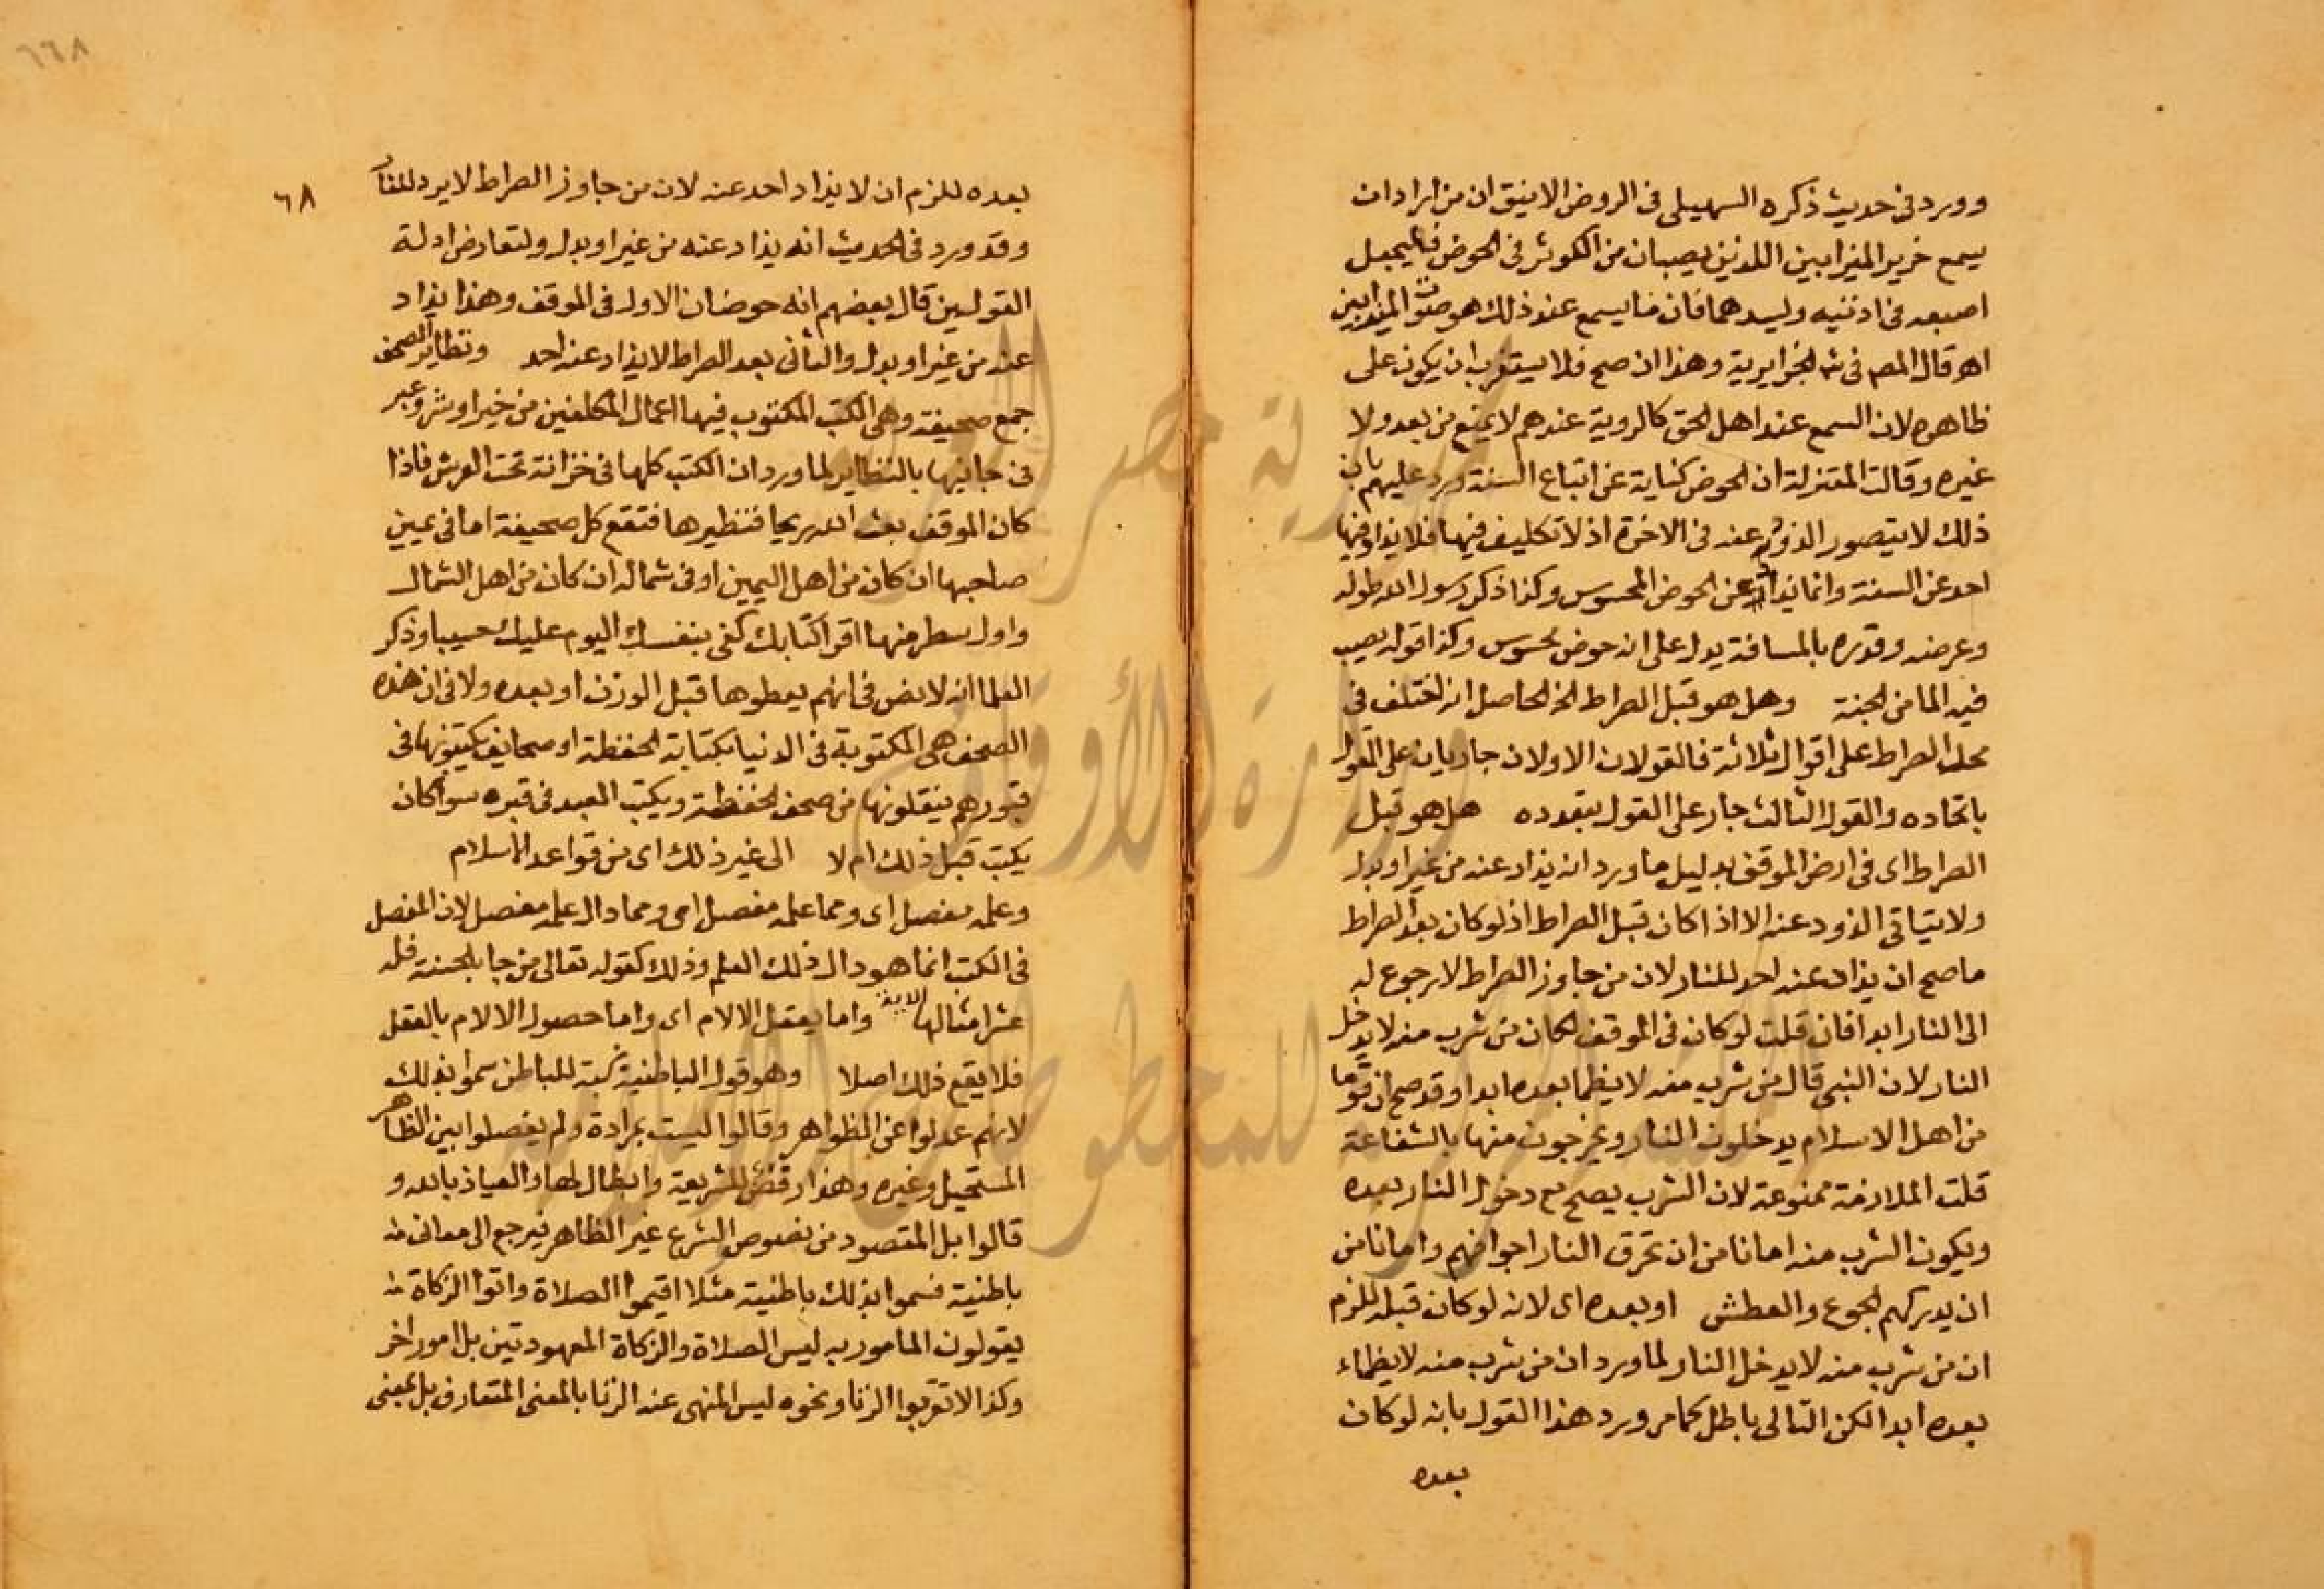 وورد في حديث ذكره السهيلي في الروض الانيق ان من اراد ان
يسمع خرير الميزابين اللذين يصبان من الكوثر في الحوض فليجعل
اصبعه في اذنيه وليسدهما فان ما يسمع عند ذلك هو صوت الميزابين
اهـ قال المصـ في شـ الجزايرية وهذا ان صح فلا يستغرب ان يكون على
ظاهره لان السمع عند اهل الحق كالروية عندهم لا يمنع من بعد ولا
غيره وقالت المعتزلة ان الحوض كناية عن اتباع السنة ورد عليهم بان
ذلك لا يتصور الذود عنه في الاخرة اذ لا تكليف فيها فلا يذاد فيها
احد عن السنة وانما يذاد عن الحوض المحسوس وكذا ذكر رسول الله طوله
وعرضه وقدره بالمسافة يدل على انه حوض محسوس وكذا قوله يصب
فيه الما من الجنة وهل هو قبل الصراط الخ الحاصل انه اختلف في
محله الصراط على اقوال ثلاثة فالقولان الاولان جاريان على القول
باتحاده والقول الثالث جار على القول بتعدده هل هو قبل
الصراط اي في ارض الموقف بدليل ما ورد انه يذاد عنه من غير او بدل
ولا يتاتى الذود عنه الا اذا كان قبل الصراط اذ لو كان بعد الصراط
ما صح ان يذاد عنه احد للنار لان من جاوز الصراط لا رجوع له
الى النار ابدا فان قلت لو كان في الموقف لكان من شرب منه لا يدخل
النار لان النبي قال من شرب منه لا يظما بعده ابدا وقد صح ان قوما
من اهل الاسلام يدخلون النار ويخرجون منها بالشفاعة
قلت الملازمة ممنوعة لان الشرب يصح مع دخول النار بعده
ويكون الشرب منه امانا من ان تحرق النار اجوافهم وامانا من
ان يدركهم الجوع والعطش او بعده اي لانه لو كان قبله للزم
ان من شرب منه لا يدخل النار لما ورد ان من شرب منه لا يظماء
بعده ابدا لكن التالي باطل كما مر ورد هذا القول بانه لو كان
بعده
٦٦٨
٦٨
بعده للزم ان لا يذاد احد عنه لان من جاوز الصراط لا يرد للنار
وقد ورد في الحديث انه يذاد عنه من غير او بدل ولتعارض ادلة
القولين قال بعضهم انه حوضان الاول في الموقف وهذا يذاد
عنه من غير او بدل والثاني بعد الصراط لا يذاد عنه احد وتطاير الصحف
جمع صحيفة وهي الكتب المكتوب فيها اعمال المكلفين من خير او شر وعبر
في جانبها بالتطاير لما ورد ان الكتب كلها في خزانة تحت العرش فاذا
كان الموقف بعث الله ريحا فتطيرها فتقع كل صحيفة اما في يمين
صاحبها ان كان من اهل اليمين او في شماله ان كان من اهل الشمال
واول سطر منها اقرا كتابك كفى بنفسك اليوم عليك حسيبا وذكر
العلما انه لا نص في انهم يعطوها قبل الوزن او بعده ولا في ان هذه
الصحف هي المكتوبة في الدنيا بكتابة الحفظة او صحايف يكتبونها في
قبورهم ينقلونها من صحف الحفظة ويكتب العبد في قبره سوا كان
يكتب قبل ذلك ام لا الى غير ذلك اي من قواعد الاسلام
وعلمه مفصل اي ومما علمه مفصل اي ومما دال علمه مفصل لان المفصل
في الكتب انما هو دال ذلك العلم وذلك كقوله تعالى من جا بالحسنة فله
عشر امثالها الاية واما يعقل الالام اي واما حصول الالام بالعقل
فلا يقع ذلك اصلا وهو قول الباطنية نسبة للباطن سموا بذلك
لانهم عدلوا عن الظواهر وقالوا ليست بمرادة ولم يفصلوا بين الظاهر
المستحيل وغيره وهذا رفض للشريعة وابطال لها والعياذ بالله و
قالوا بل المقصود من نصوص الشرع غير الظاهر فيرجع الى معاني
باطنية فسموا بذلك باطنية مثلا اقيموا الصلاة واتوا الزكاة
يقولون المامور به ليس الصلاة والزكاة المعهودتين بل امور اخر
وكذا لا تقربوا الزنا ونحوه ليس المنهي عنه الزنا بالمعنى المتعارف بل بمعنى